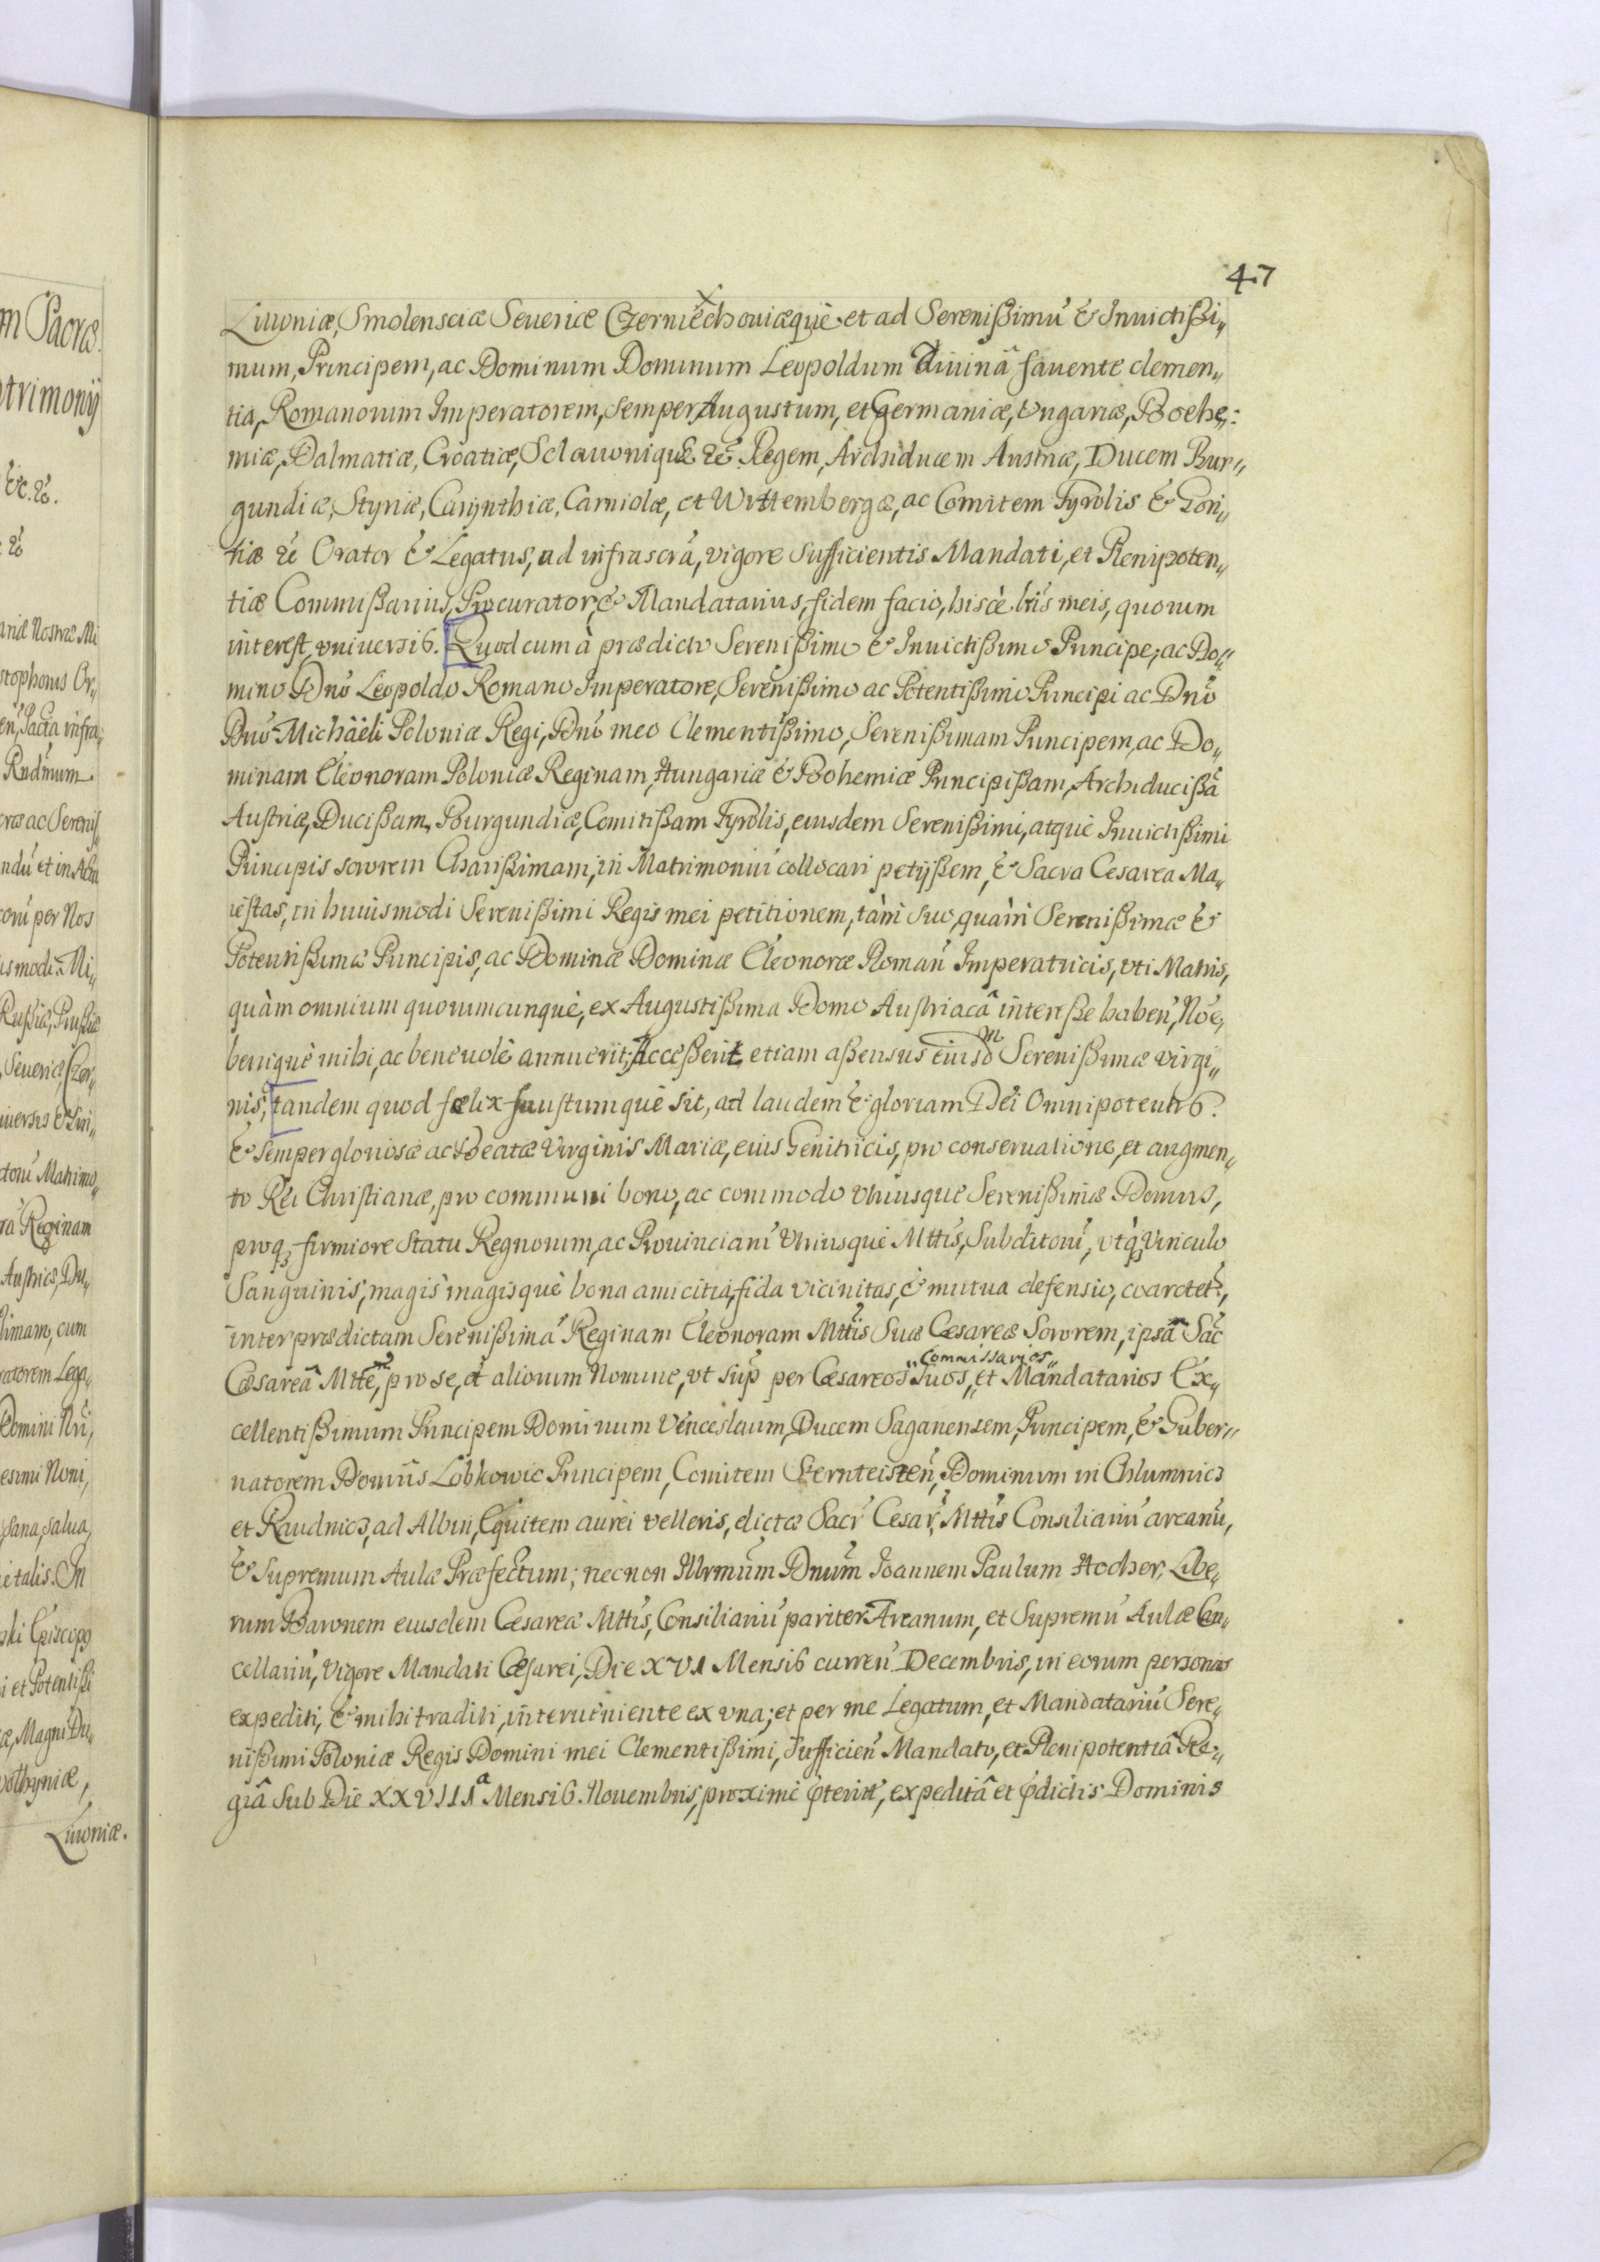 47
Liuoniæ, Smolensciæ Seueriæ Czerniechouiæquè et ad Serenißimũ & Inuictißi„
mum, Principem, ac Dominum Dominum Leopoldum diuinâ fauente clemen„
tia, Romanorum Imperatorem, semper Augustum, et Germaniæ, Vngariæ, Bohe„
miæ, Dalmatiæ, Croatiæ, Sclauoniquè &c̃ Regem, Archiducem Austriæ, Ducem Bur„
gundiæ, Styriæ, Carynthiæ, Carniolæ, et Wittembergæ, ac Comitem Tyrolis & Gori„
tiæ &c̃ Orator & Legatus, ad infrascrã, vigore sufficientis Mandati, et Plenipoten„
tiæ Commißarius, Procurator, & Mandatarius, fidem facio, hiscè lris̃ meis, quorum
interest vniuersis. Quod cum à prædicto Serenißimo & Inuictißimo Principe, ac Do„
mino Dnõ Leopoldo Romano Imperatore, Serenißimo ac Potentißimo Principi ac Dnõ
Dnõ Michäeli Poloniæ Regi, Dnõ meo Clementißimo, Serenißimam Principem, ac Do„
minam Eleonoram Poloniæ Reginam, Hungariæ & Bohemiæ Principißam, Archiducißã
Austriæ, Ducißam, Burgundiæ, Comitißam Tyrolis, eiusdem Serenißimi, atquè Inuictißimi
Principis sororem Charißimam, in Matrimoniũ collocari petijßem, & Sacra Cesarea Ma„
iestas, in huiusmodi Serenißimi Regis mei petitionem, tàm suo, quàm Serenißimæ &
Potentißimæ Principis, ac Dominæ Dominæ Eleonoræ Romañ Imperatricis, vti Matris,
quàm omnium quorumcunquè, ex Augustißima Domo Austriacâ intereße habeñ, Noẽ,
beniquè mihi, ac beneuolè annuerit; Acceßerit etiam aßensus eiusdm Serenißimæ virgi„
nis, tandem quod fælix faustumquè sit, ad laudem & gloriam Dei Omnipotentis.
& semper gloriosæ ac Beatæ Virginis Mariæ, eius Genitricis, pro conseruatione, et augmen„
to Rei Christianæ, pro communi bono, ac commodo vtriusquè Serenißimæ Domus,
proq; firmiore Statu Regnorum, ac Prouinciarũ vtriusquè Mttis̃, Subditorũ, vtq; Vinculo
Sanguinis, magis magisquè bona amicitia, fida vicinitas, & mutua defensio, coarctet̃,
inter prædictam Serenißimã Reginam Eleonoram Mttis̃ Suæ Cæsareæ Sororem, ipsã Sac̃
Cæsareâ Mttẽ, pro se, et aliorum Nomine, vt sup̃ per Cæsareos „Commissarios„ suos, et Mandatarios Ex„
cellentißimum Principem Dominum Venceslaum, Ducem Saganensem, Principem, & Guber„
natorem Domus Lobkowic Principem, Comitem Sternteisteñ, Dominum in Chlumnics
et Raudnics, ad Albin, Equitem aurei velleris, dictæ Sacr̃ Cesar̃, Mttis̃ Consiliariũ arcanũ,
& Supremum Aulæ Præfectum; necnon Illrmũm Dnũm Joannem Paulum Hocher, Libe„
rum Baronem eiusdem Cæsareæ Mttis̃, Consiliariũ pariter Arcanum, et Supremũ Aulæ Can„
cellariũ, vigore Mandati Cæsarei, Die XVI Mensis curreñ Decembris, in eorum personas
expediti, & mihi traditi, interueniente ex vna; et per me Legatum, et Mandatariũ Sere„
nißimi Poloniæ Regis Domini mei Clementißimi, sufficieñ Mandato, et Plenipotentiâ Re„
giâ Sub Die XXVIIIª Mensis Nouembris, proximè p̃terit̃, expeditâ et p̃dictis Dominis